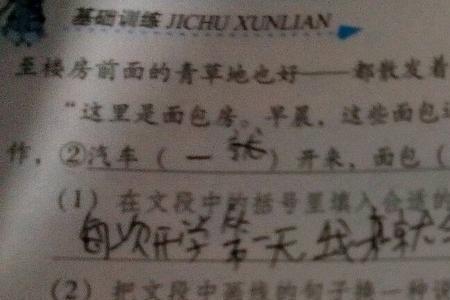 基础训练 JICHU XUNLIAN
至楼房前面的青草地也好——都散发着
“这里是面包房。早晨，这些面包
作，②汽车（一就）开来，面包（
（1）在文段中的括号里填入合适的
每次开学第一天，我来就
（2）把文段中画线的句子换一种说